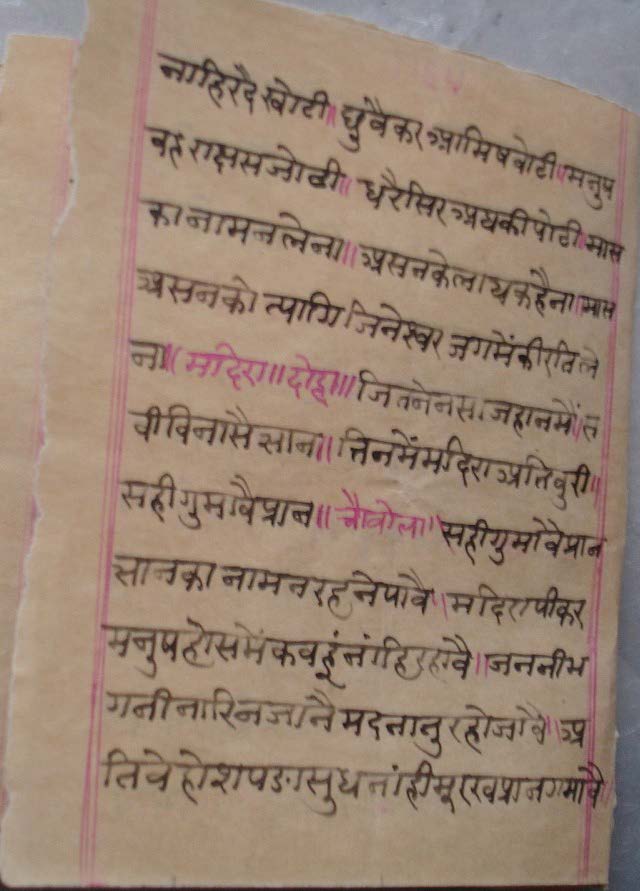 नाहिरदै खोटी॥ छुवै कर आमिष वोटी॥ मनुष
वह राक्षस जोटी॥ धरै सिर अघ की पोटी॥ मास
का नाम न लेना॥ असन के लायक है ना॥ मास
असन को त्यागि जिनेस्वर जग में कीरति ले
ना॥ मदिरा॥ दोहा॥ जितने नसा जहान में॥ स
वी विनासै सान॥ तिनमें मदिरा अति वुरी॥
सही गुमावै प्रान॥ चौवोला॥ सही गुमावै प्रान
सान का नाम न रहने पावै॥ मदिरा पीकर
मनुष होस में कवहूं नांहि रहावै॥ जननी भ
गनी नारि न जानै मदनातुर हो जावै॥ अ
ति वेहोश पडा सुध नांही मूरख प्रान गमावै॥